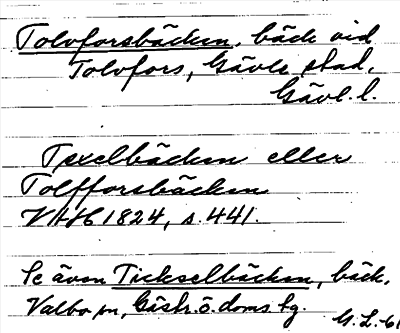 Tolvforsbäcken, bäck vid
Tolvfors, Gävle stad,
Gävl. l.
Texelbäcken eller
Tolfforsbäcken
VHH 1824, s. 441.
Se även Tickselbäcken, bäck,
Valbo sn, Gästr. ö. doms. bg.
G. L. -61